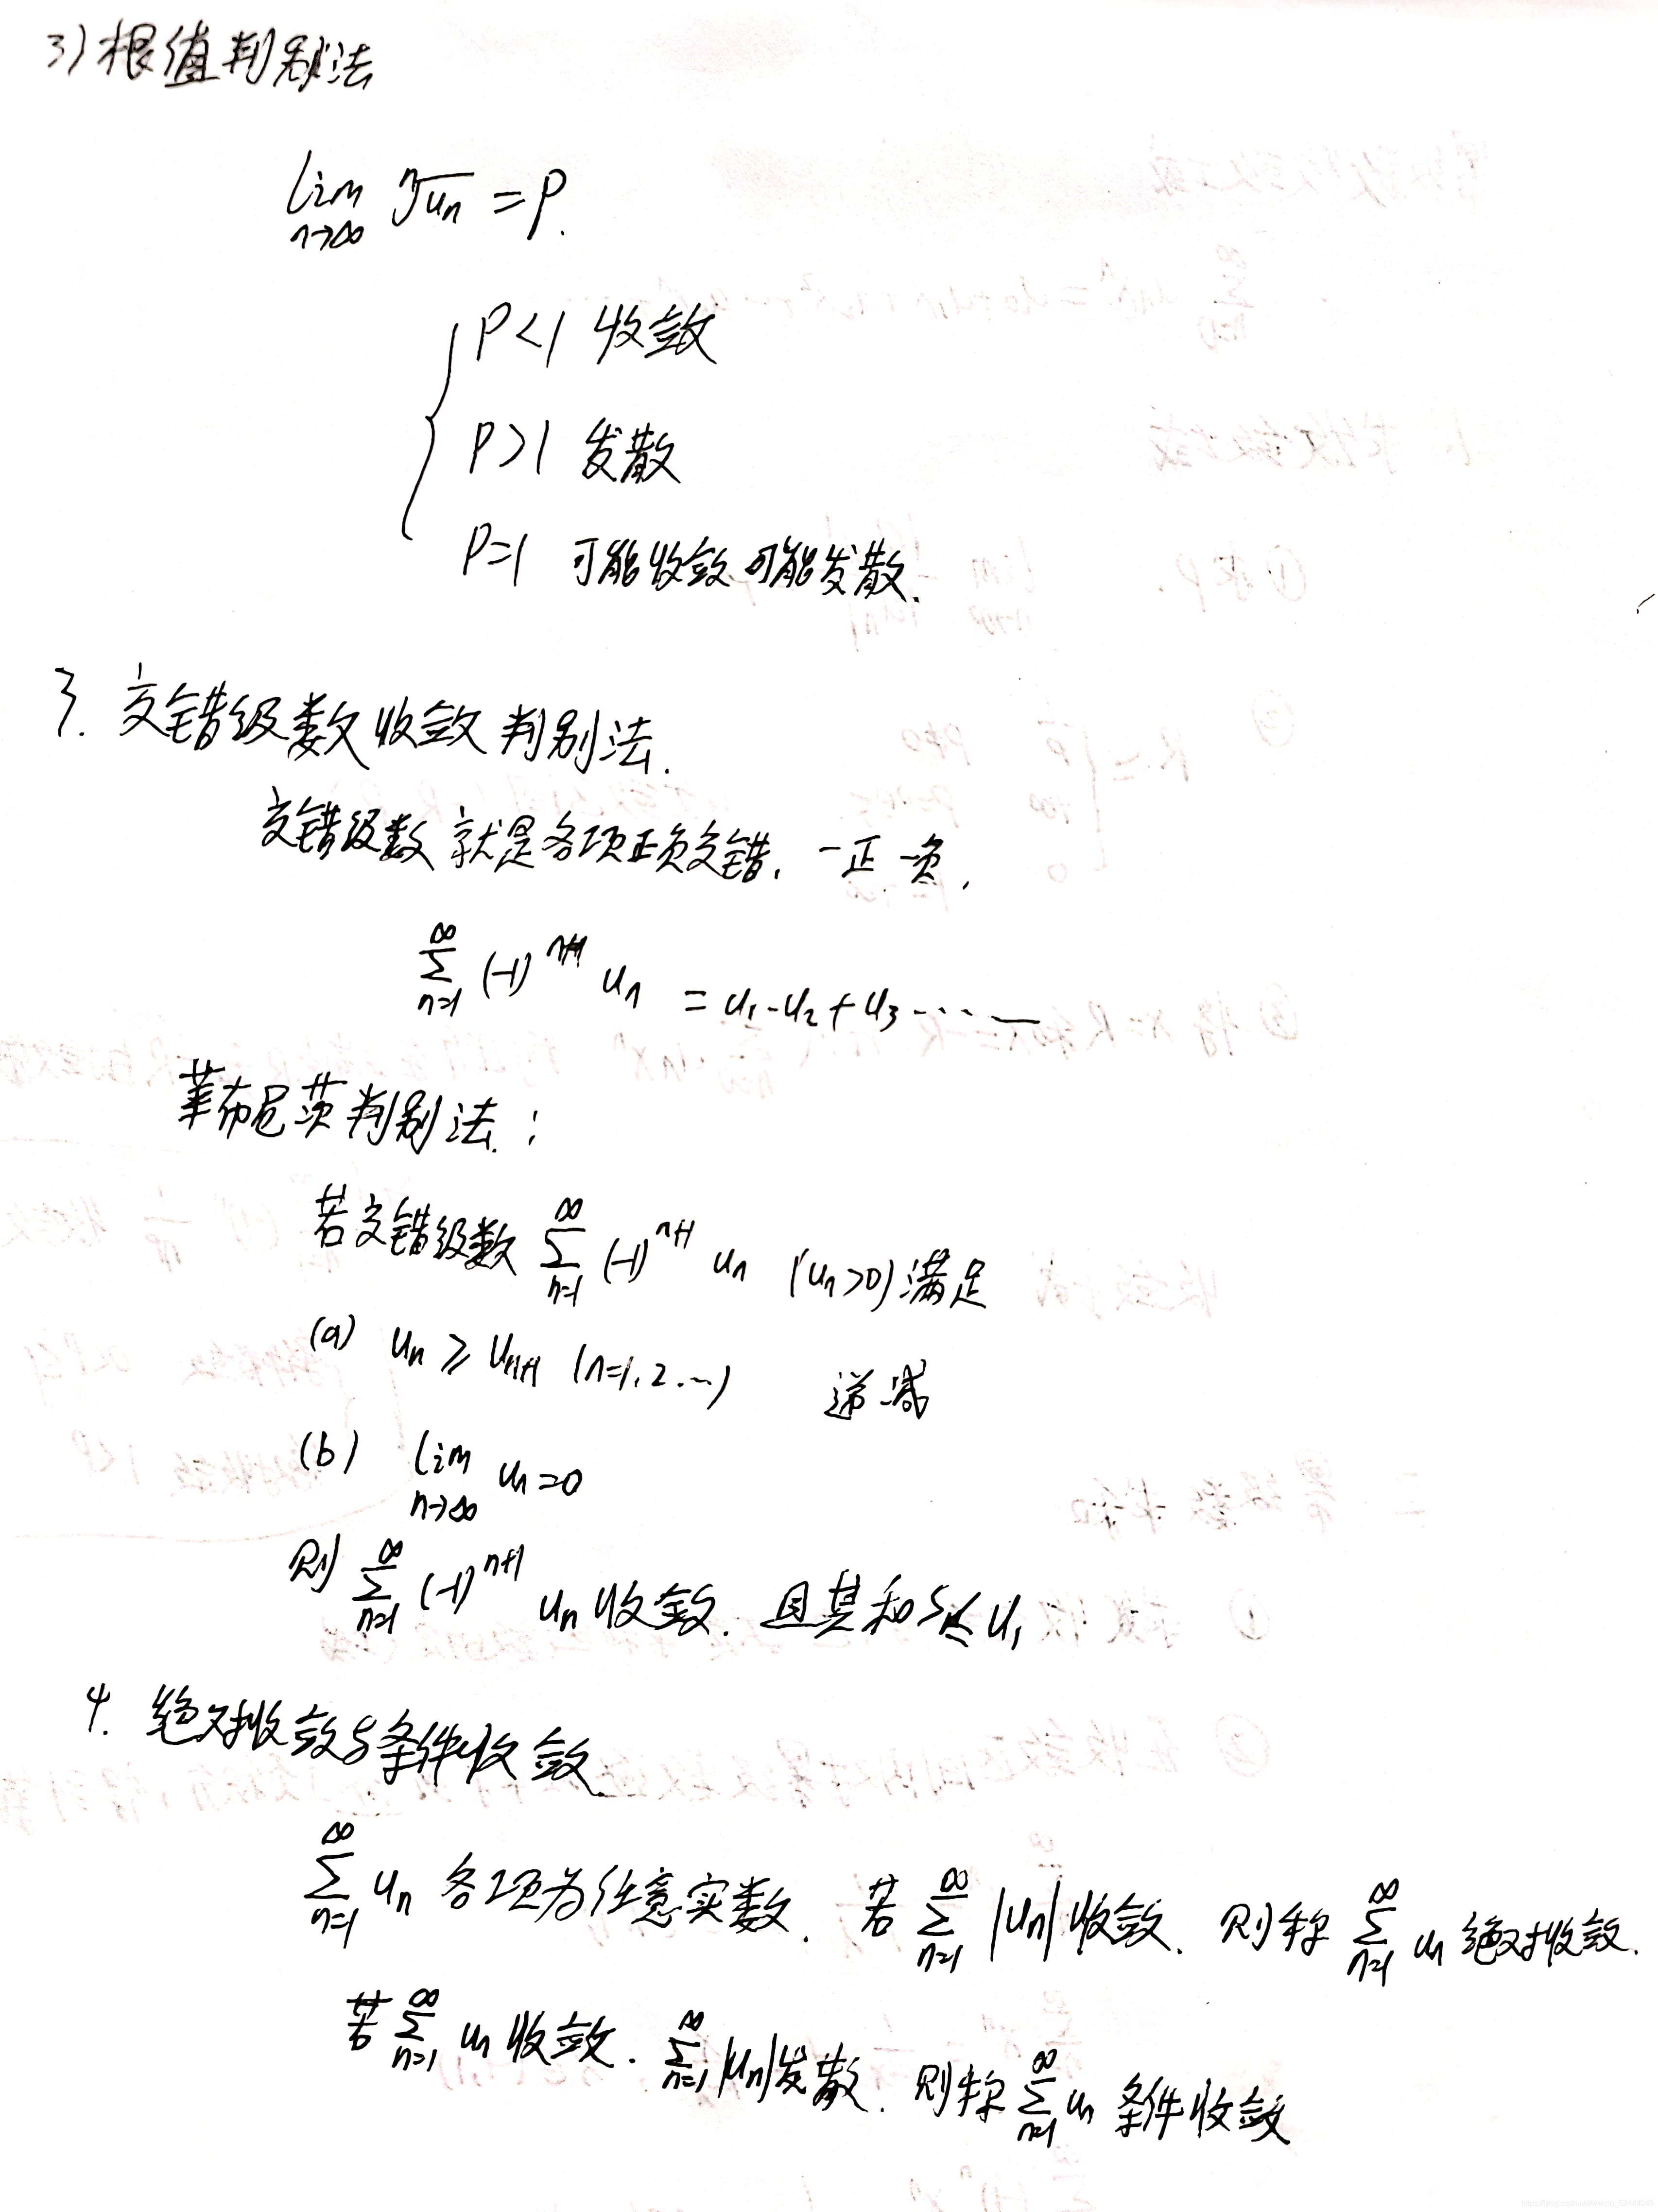 3) 根值判别法
lim n→∞ ⁿ√uₙ = ρ.
ρ<1 收敛
ρ>1 发散
ρ=1 可能收敛可能发散.
3. 交错级数收敛判别法.
交错级数就是各项正负交错, 一正一负,
∑ n=1 ∞ (-1)ⁿ⁺¹ uₙ = u₁-u₂+u₃-……
莱布尼茨判别法:
若交错级数 ∑ n=1 ∞ (-1)ⁿ⁺¹ uₙ (uₙ>0) 满足
(a) uₙ ≥ uₙ₊₁ (n=1,2…) 递减
(b) lim n→∞ uₙ=0
则 ∑ n=1 ∞ (-1)ⁿ⁺¹ uₙ 收敛. 且其和 S≤u₁
4. 绝对收敛与条件收敛
∑ n=1 ∞ uₙ 各项为任意实数. 若 ∑ n=1 ∞ |uₙ| 收敛. 则称 ∑ n=1 ∞ uₙ 绝对收敛.
若 ∑ n=1 ∞ uₙ 收敛. ∑ n=1 ∞ |uₙ| 发散. 则称 ∑ n=1 ∞ uₙ 条件收敛